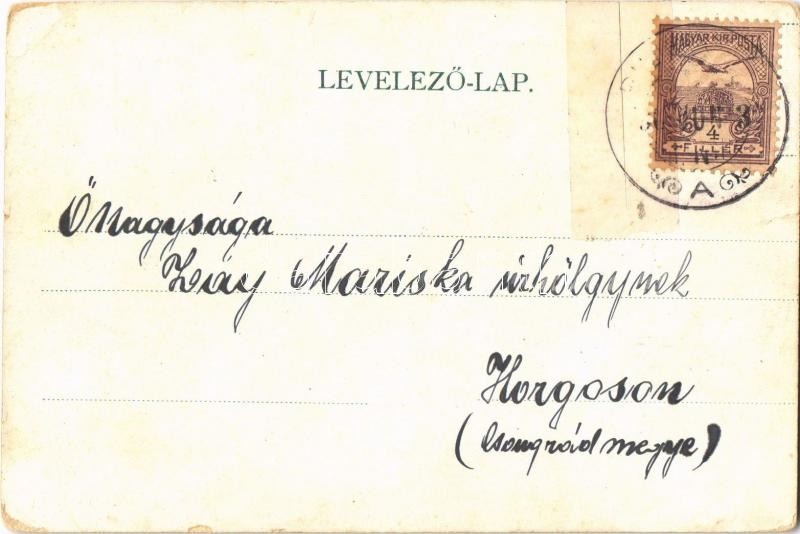 LEVELEZŐ-LAP.
MAGYAR KIR. POSTA
JUN 3
4
FILLÉR
N
A
Őnagysága
Záy Mariska úrhölgynek
Horgoson
(Csongrád megye)